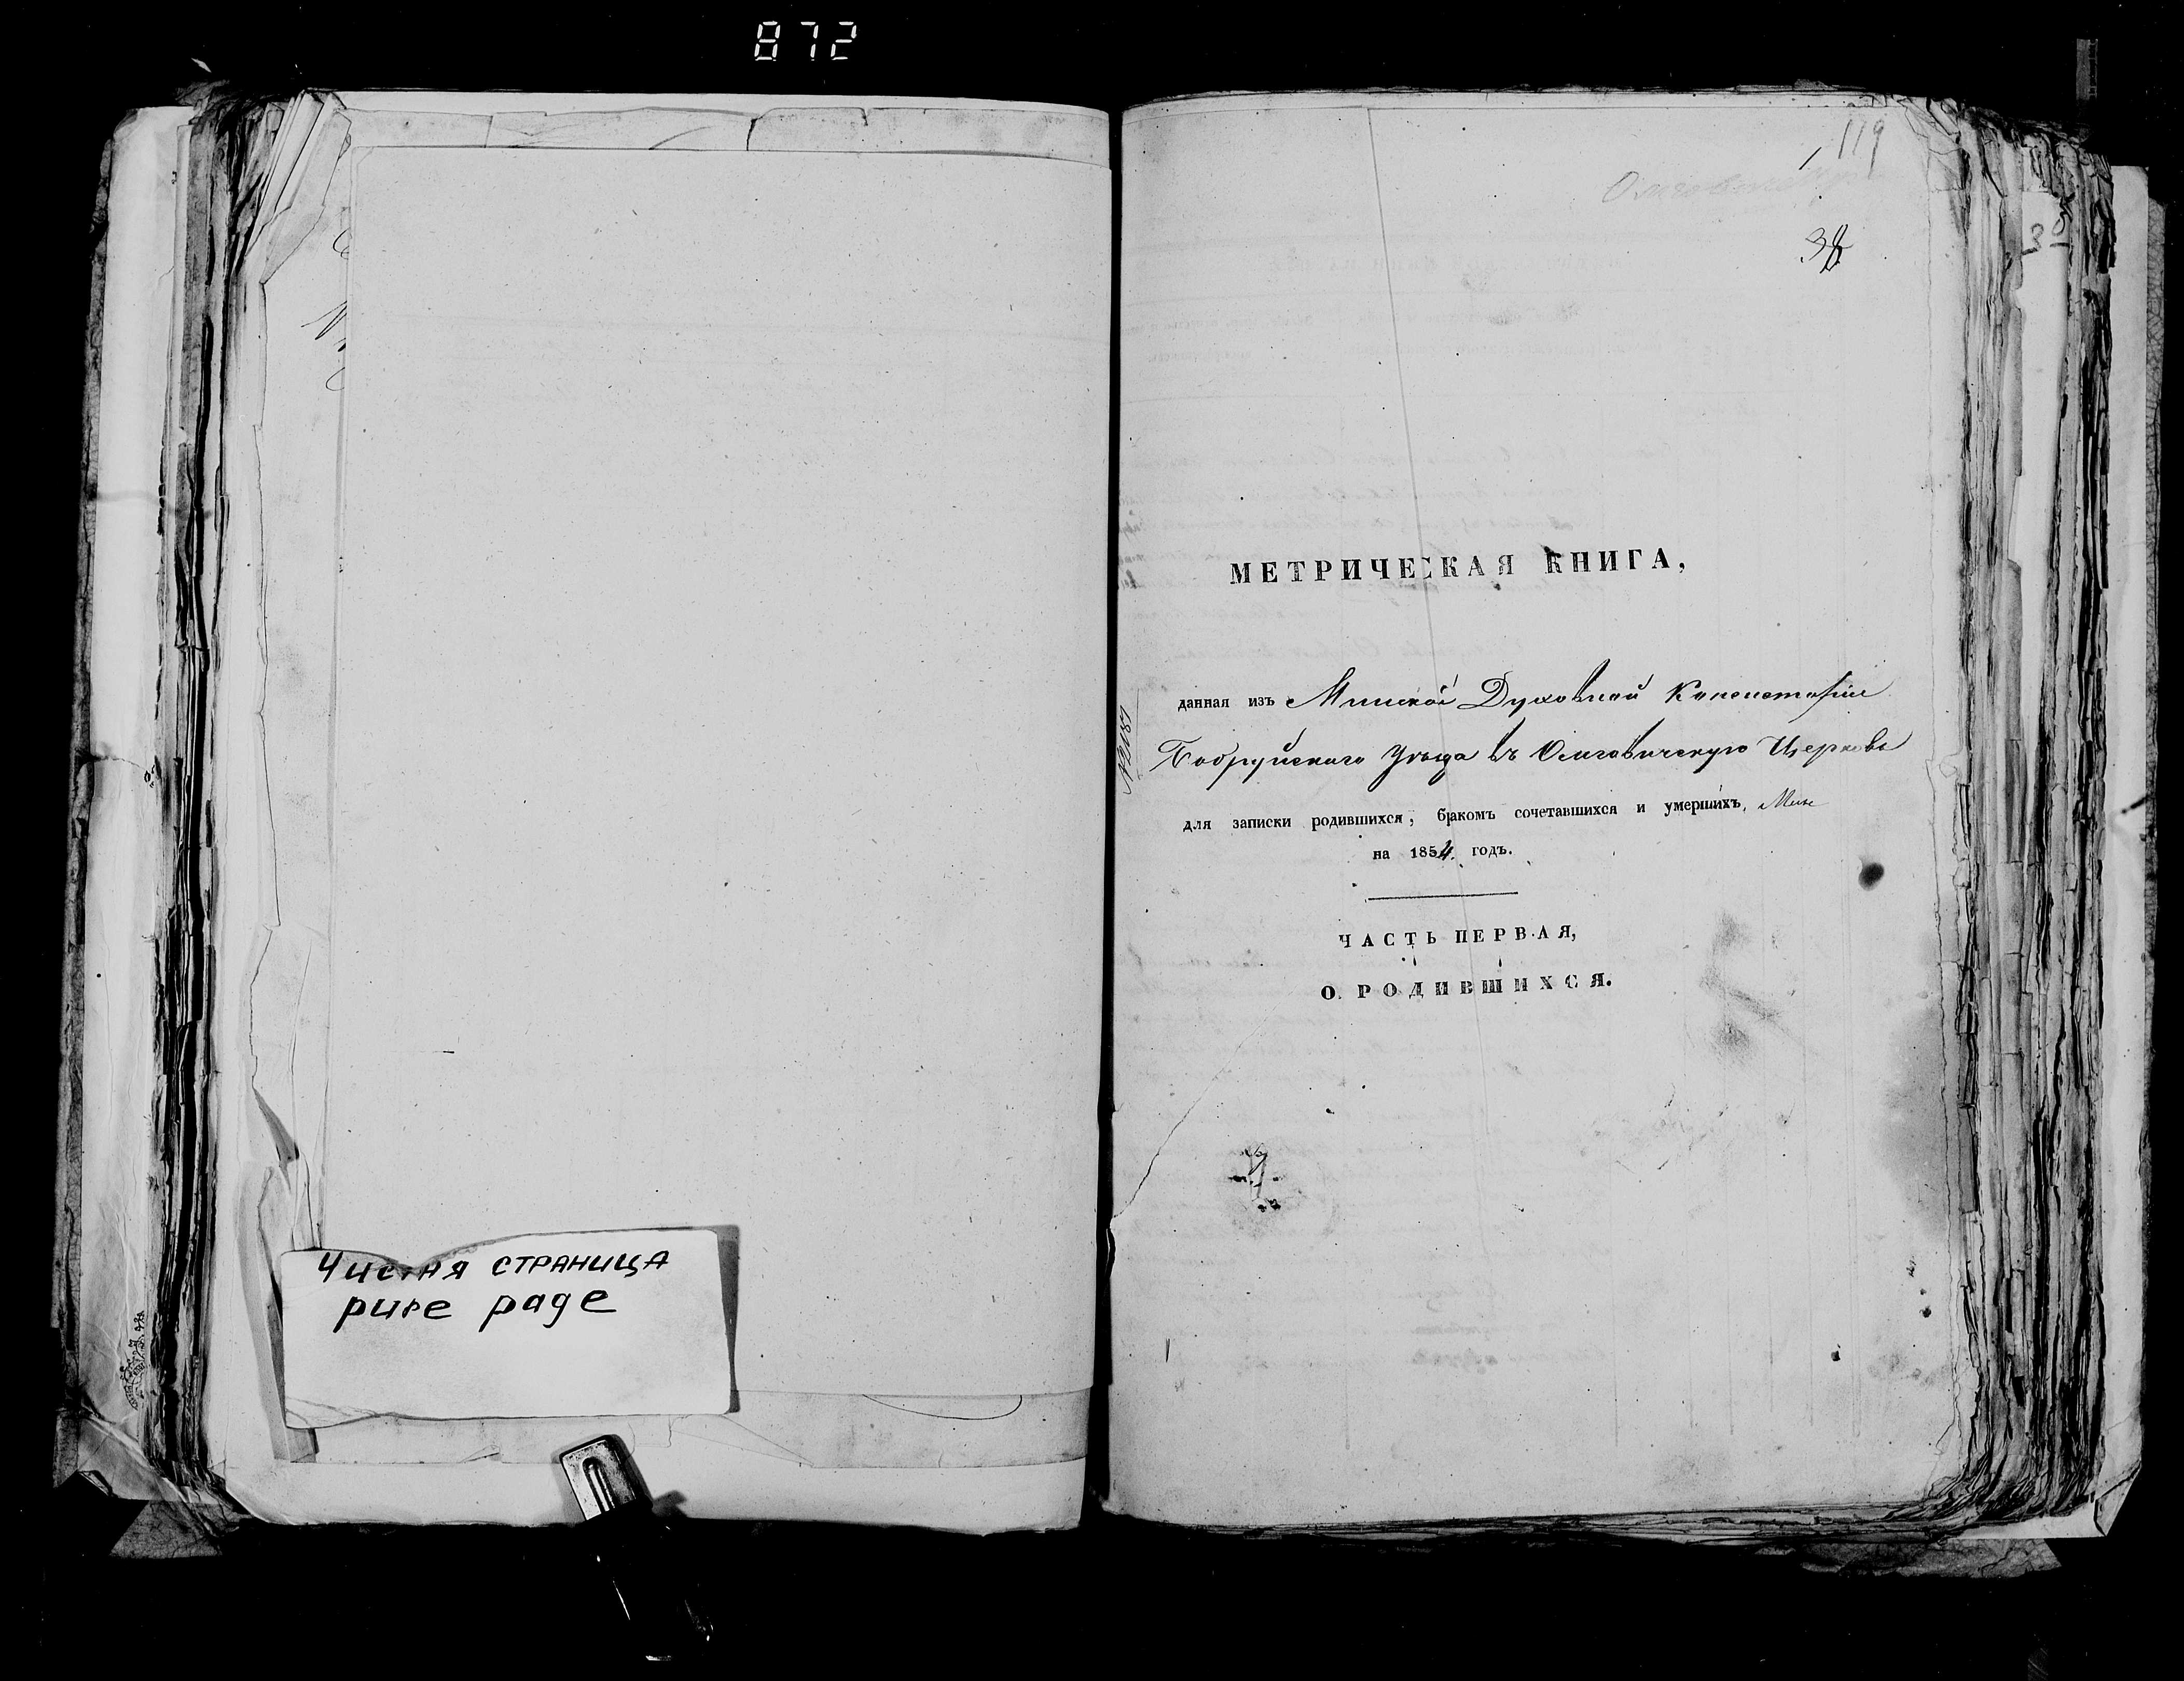 872
Чистая страница
pure page
119
38
МЕТРИЧЕСКАЯ КНИГА,
данная изъ Минской Духовной Консисторіи
Бобруйскаго Уѣзда въ Осиговичскую Церковь
для записки родившихся, бракомъ сочетавшихся и умершихъ,
на 1854. годъ.
ЧАСТЬ ПЕРВАЯ,
О РОДИВШИХСЯ.